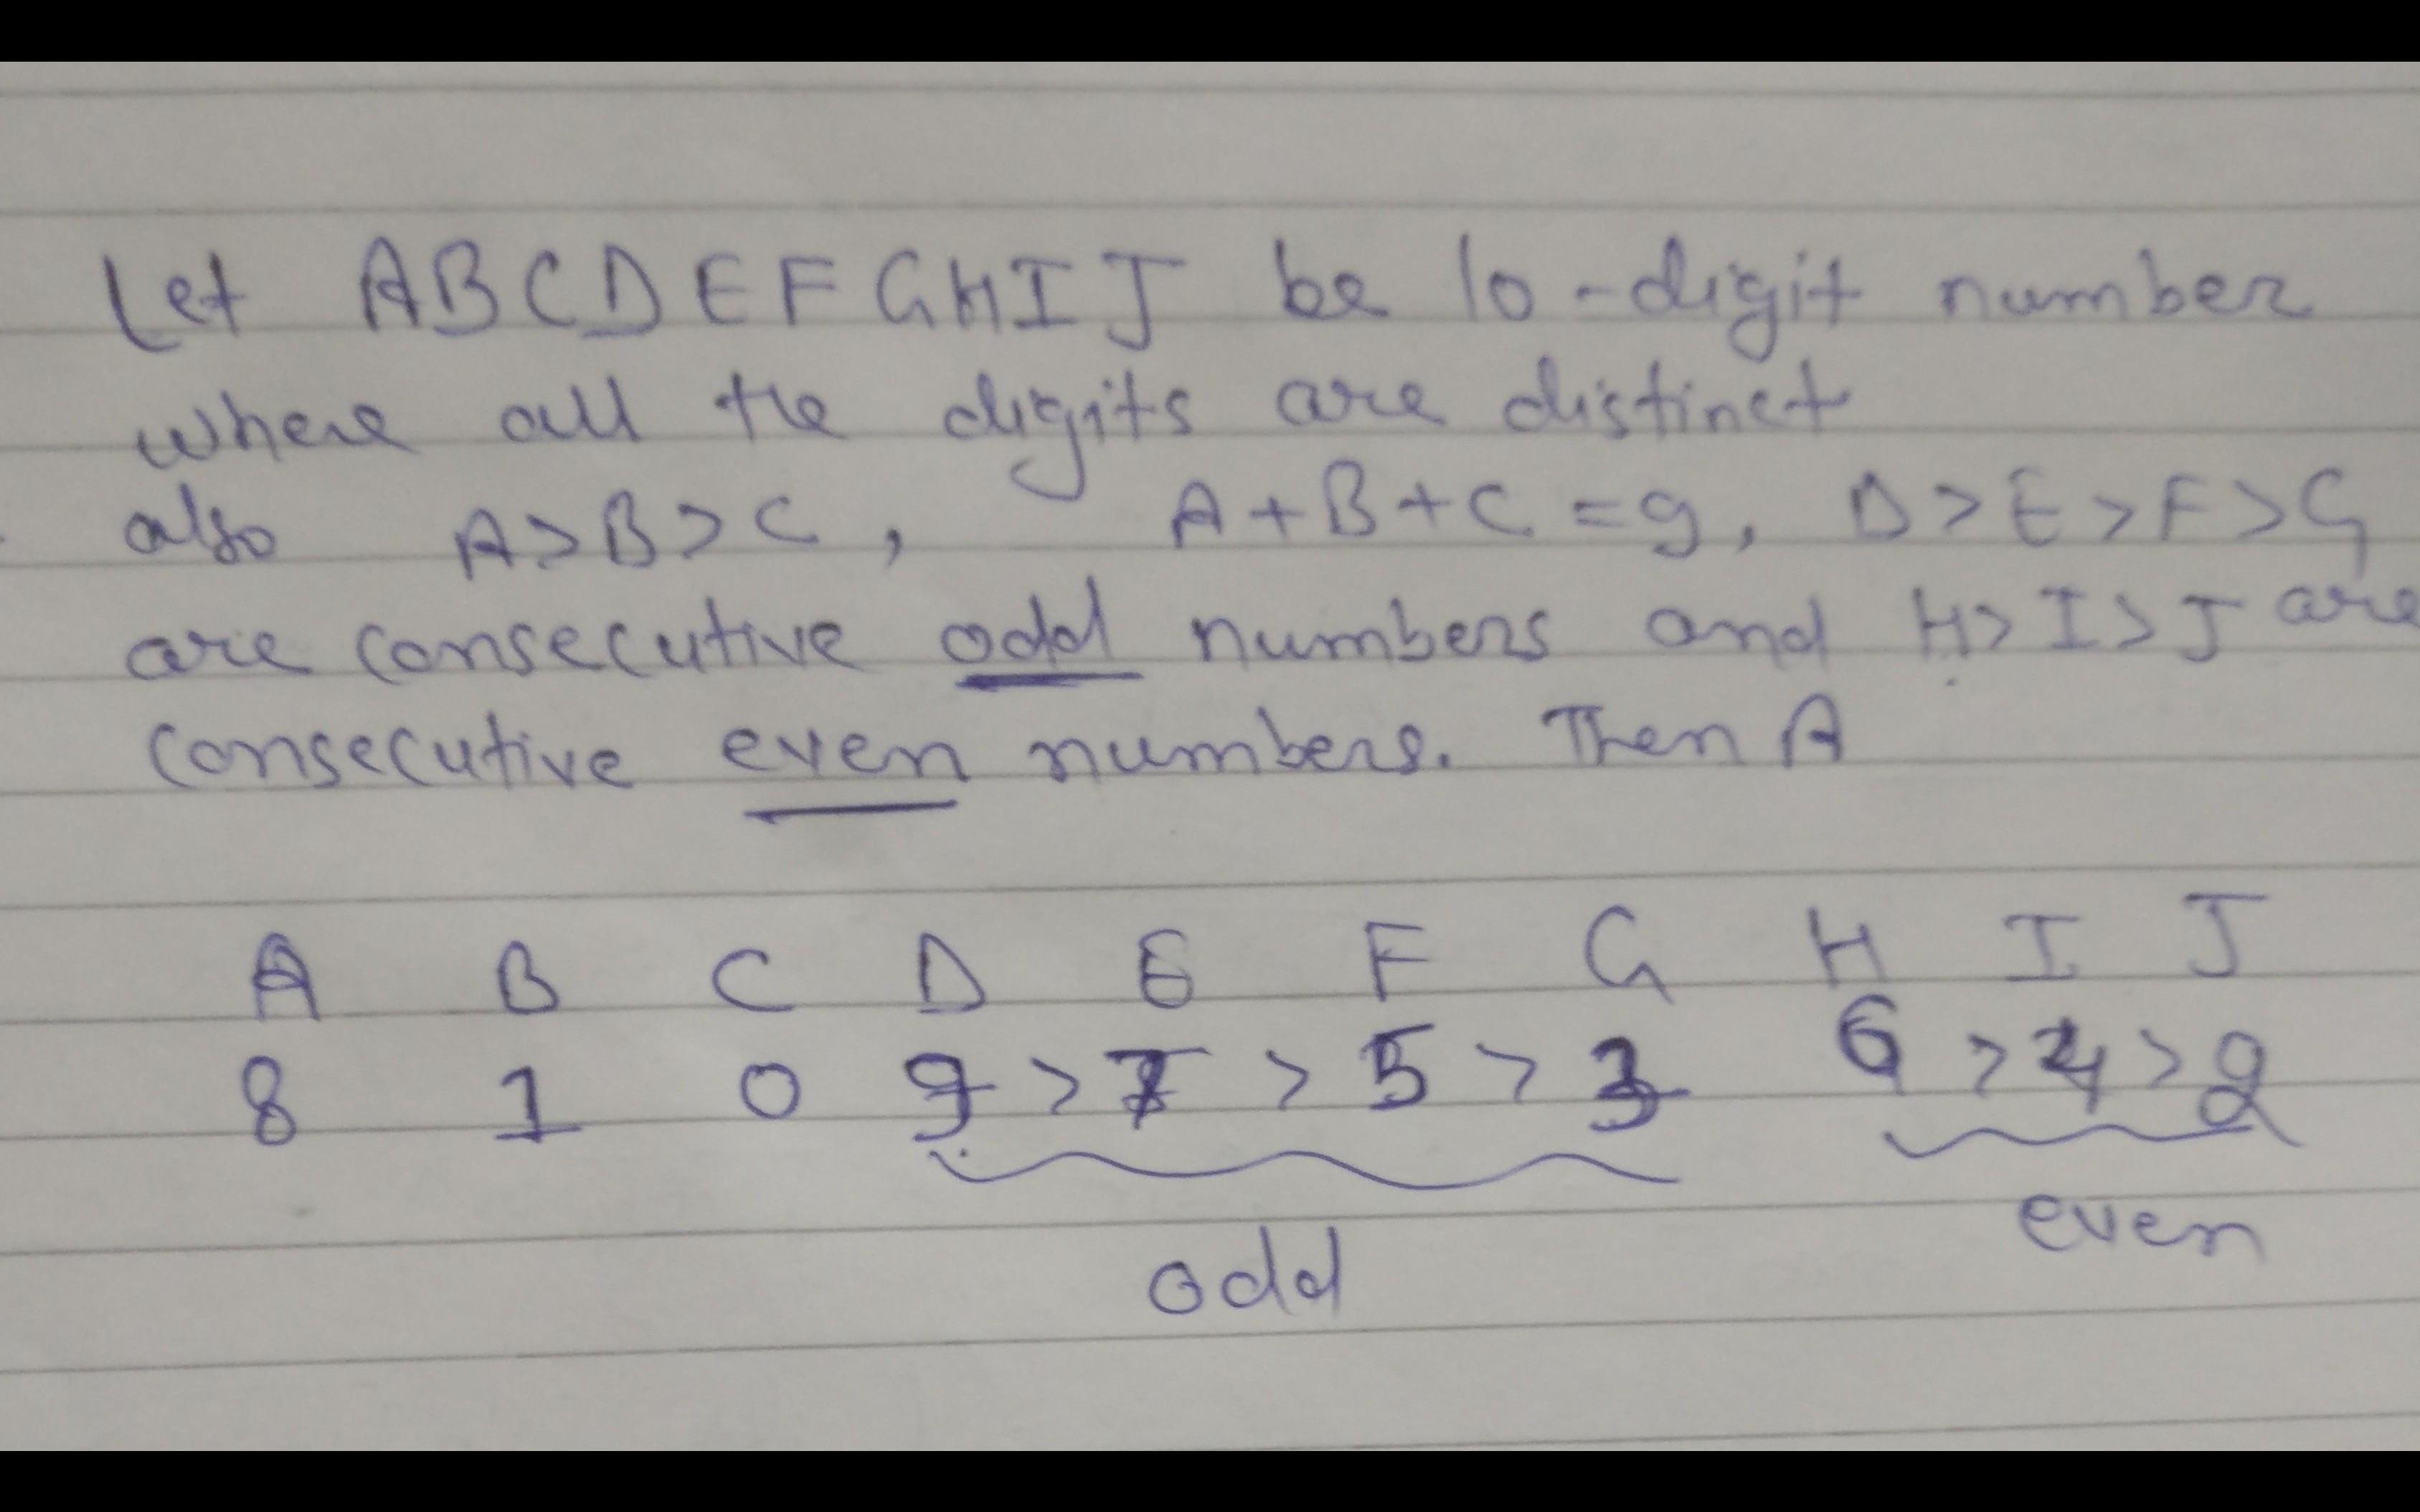 Let ABCDEFGHIJ be 10-digit number
where all the digits are distinct
also A>B>C, A+B+C=9, D>E>F>G
are consecutive odd numbers and H>I>J are
consecutive even numbers. Then A
A B C D E F G H I J
8 1 0 9 > 7 > 5 > 3 6 > 4 > 2
even
odd